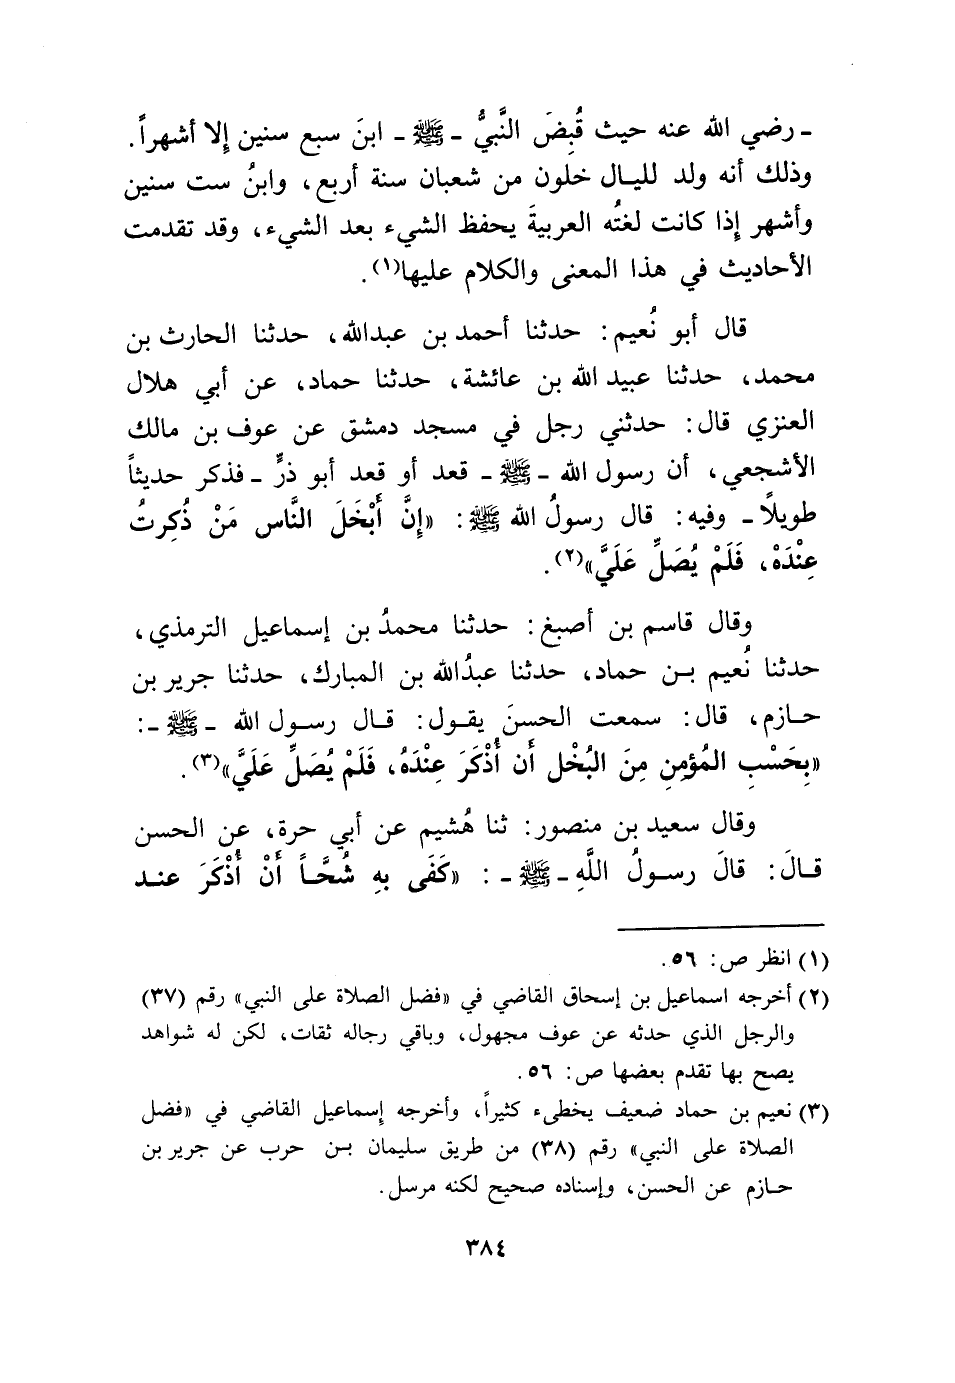 ـ رضي الله عنه حيث قُبِضَ النَّبيُّ ـ ﷺ ـ ابنَ سبع سنين إِلا أشهراً.
وذلك أنه ولد لليـال خلون من شعبان سنة أربع، وابنُ ست سنين
وأشهر إِذا كانت لغتُه العربيةَ يحفظ الشيء بعد الشيء، وقد تقدمت
الأحاديث في هذا المعنى والكلام عليها(١).
قال أبو نُعيم: حدثنا أحمد بن عبدالله، حدثنا الحارث بن
محمد، حدثنا عبيد الله بن عائشة، حدثنا حماد، عن أبي هلال
العنزي قال: حدثني رجل في مسجد دمشق عن عوف بن مالك
الأشجعي، أن رسول الله ـ ﷺ ـ قعد أو قعد أبو ذرٍّ ـ فذكر حديثاً
طويلاً ـ وفيه: قال رسولُ الله ﷺ: «إِنَّ أَبْخَلَ النَّاس مَنْ ذُكِرتُ
عِنْدَهْ، فَلَمْ يُصَلِّ عَلَيَّ»(٢).
وقال قاسم بن أصبغ: حدثنا محمدُ بن إِسماعيل الترمذي،
حدثنا نُعيم بـن حماد، حدثنا عبدُالله بن المبارك، حدثنا جرير بن
حـازم، قال: سمعت الحسنَ يقـول: قـال رسـول الله ـ ﷺ ـ:
«بِحَسْبِ المُؤمِنِ مِنَ البُخْل أَن أُذْكَرَ عِنْدَهُ، فَلَمْ يُصَلِّ عَلَيَّ»(٣).
وقال سعيد بن منصور: ثنا هُشيم عن أبي حرة، عن الحسن
قـالَ: قالَ رسـولُ اللَّهِ ـ ﷺ ـ: «كَفَى بِهِ شُحَّـاً أَنْ أُذْكَرَ عنـد
(١) انظر ص: ٥٦.
(٢) أخرجه اسماعيل بن إِسحاق القاضي في «فضل الصلاة على النبي» رقم (٣٧)
والرجل الذي حدثه عن عوف مجهول، وباقي رجاله ثقات، لكن له شواهد
يصح بها تقدم بعضها ص: ٥٦.
(٣) نعيم بن حماد ضعيف يخطىء كثيراً، وأخرجه إِسماعيل القاضي في «فضل
الصلاة على النبي» رقم (٣٨) من طريق سليمان بـن حرب عن جرير بن
حـازم عن الحسن، وإِسناده صحيح لكنه مرسل.
٣٨٤